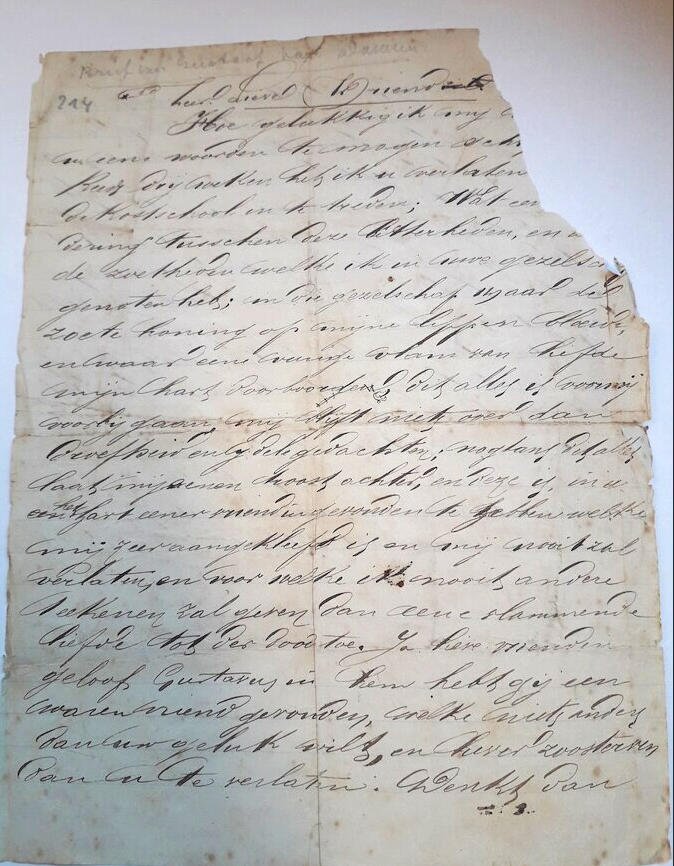 Brief van Gustaaf aan
214
Hoe gelukkig ik mij
u eene woorden te mogen
drij weken heb ik u verlaten
de kostschool in te treden; Wat een
dering tusschen deze bitterheden, en
de zoetheden welke ik in uwe gezels
genoten heb; in die gezelschap waar de
zoete honing op mijne lippen vloeide,
en waar eene vurige vlam van liefde
mijn hart doorboorde, dit alles is voor mij
voorbij gaan, mij blijft niets over dan
droefheid en ijdele gedachten; nogtans dit alles
laat mij eenen troost achter, en deze is in u
het hart eener vriendin gevonden te hebben welke
mij zeer aangekleefd is en mij nooit zal
verlaten, en voor welke ik nooit andere
teekenen zal geven dan eene vlammende
liefde tot der dood toe. Ja lieve vriendin
geloof Gustavus in hem hebt gij een
waren vriend gevonden, welke niets anders
dan uw geluk wilt, en liever zoo sterven
dan u te verlaten. Denkt dan